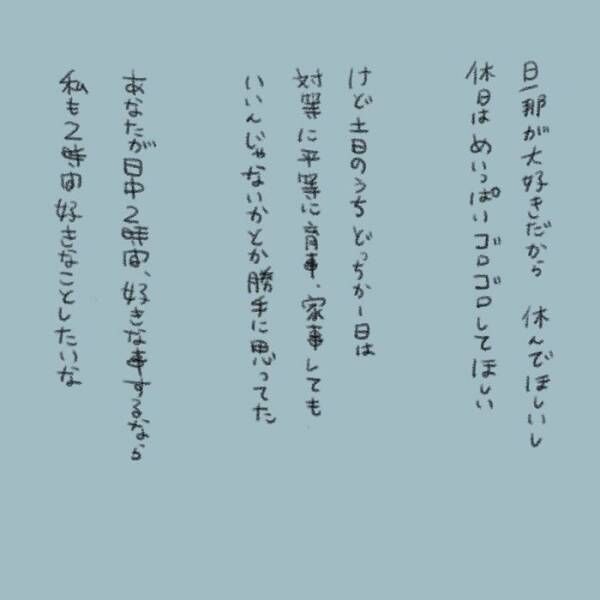 旦那が大好きだから　休んでほしいし
休日はめいっぱいゴロゴロしてほしい
けど土日のうちどっちか1日は
対等に平等に育事、家事しても
いいんじゃないかとか勝手に思ってた
あなたが日中2時間、好きな事するなら
私も2時間好きなことしたいな